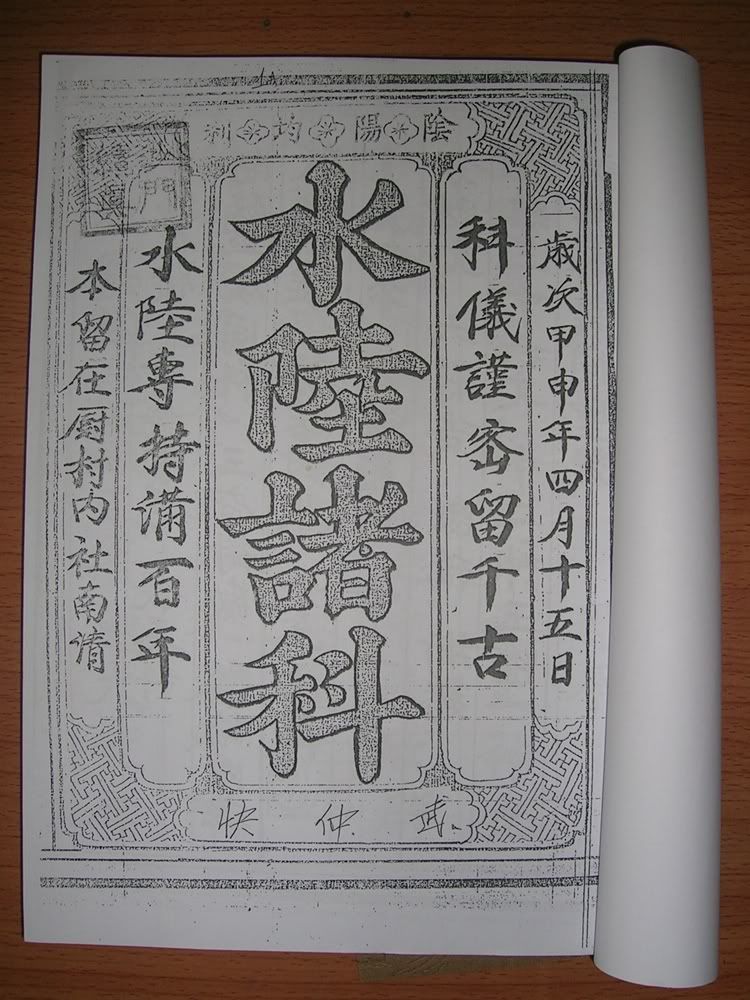 陰陽均利
歲次甲申年四月十五日
科儀謹密留千古
水陸諸科
水陸專持備百年
本留在厨村内社南清
武仲快